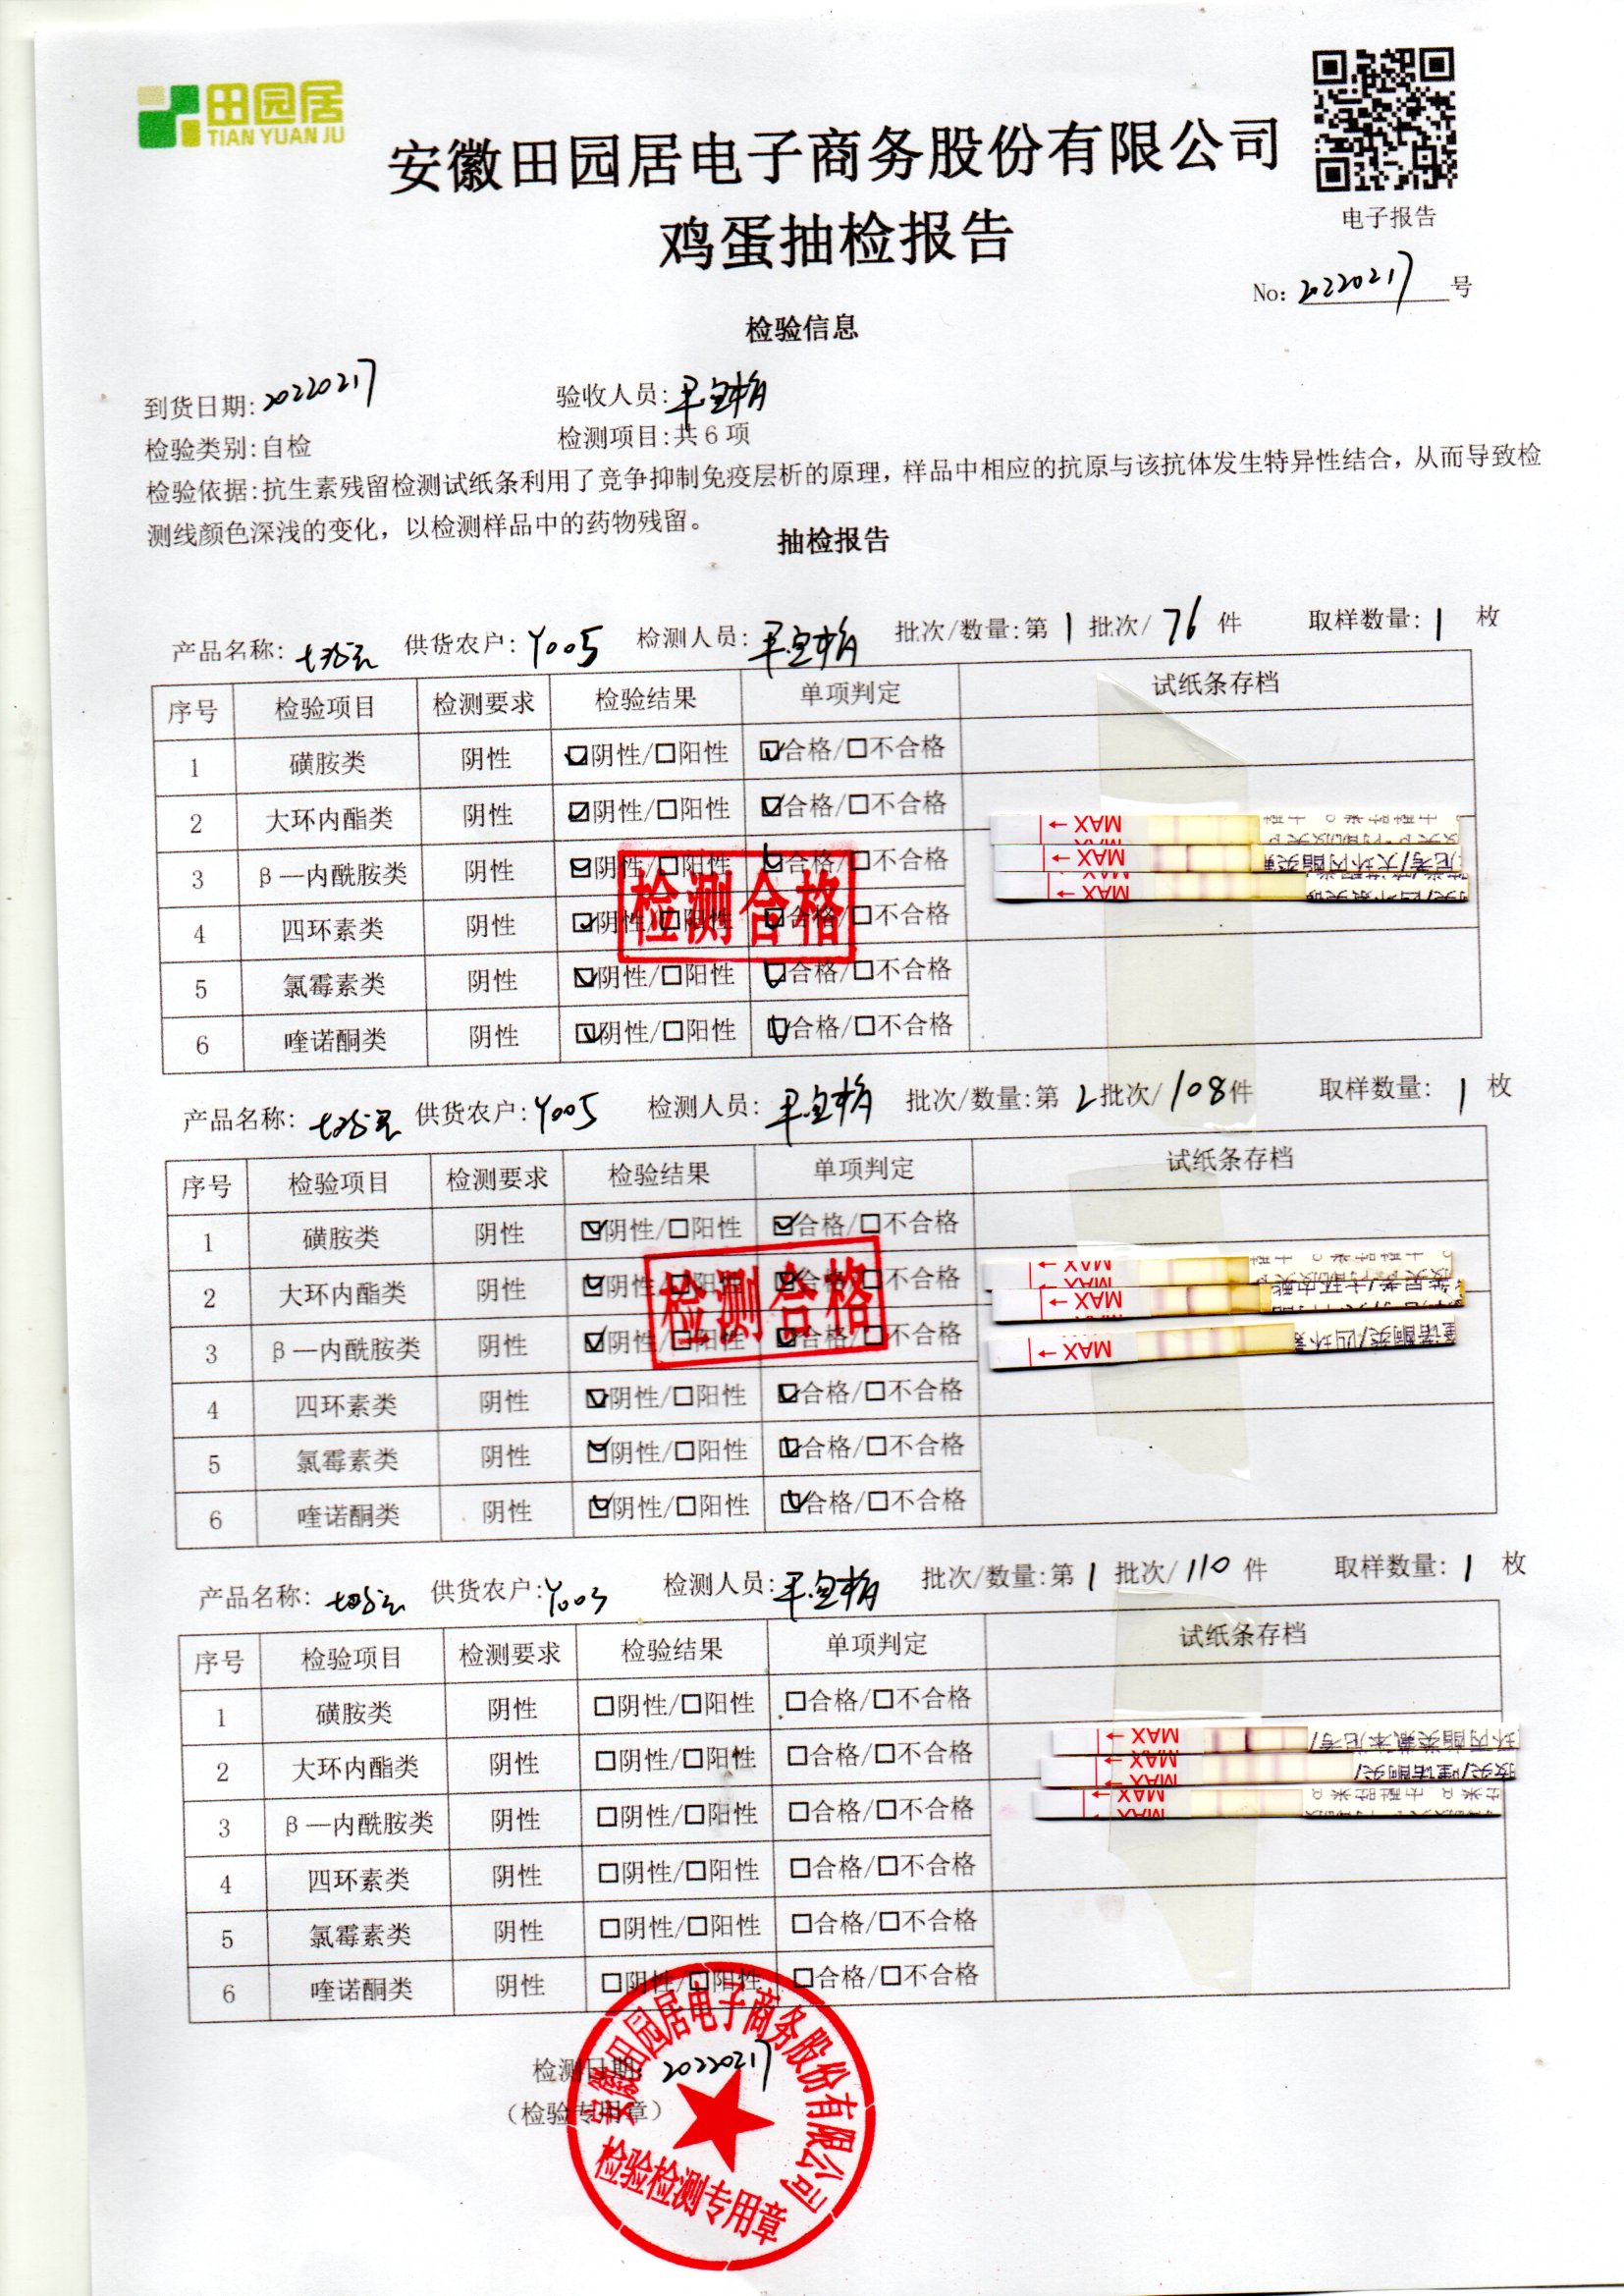 田园居
TIAN YUAN JU
安徽田园居电子商务股份有限公司
鸡蛋抽检报告
电子报告
No: 20220217 号
检验信息
到货日期:20220217 验收人员:
检验类别:自检 检测项目:共6项
检验依据:抗生素残留检测试纸条利用了竞争抑制免疫层析的原理，样品中相应的抗原与该抗体发生特异性结合，从而导致检
测线颜色深浅的变化，以检测样品中的药物残留。
抽检报告
产品名称: 供货农户:Y005 检测人员: 批次/数量:第1批次/76件 取样数量:1枚
序号 检验项目 检测要求 检验结果 单项判定 试纸条存档
1 磺胺类 阴性 ☑阴性/☐阳性 ☑合格/☐不合格
2 大环内酯类 阴性 ☑阴性/☐阳性 ☑合格/☐不合格
3 β—内酰胺类 阴性 ☑阴性/☐阳性 ☑合格/☐不合格
4 四环素类 阴性 ☑阴性/☐阳性 ☑合格/☐不合格
5 氯霉素类 阴性 ☑阴性/☐阳性 ☑合格/☐不合格
6 喹诺酮类 阴性 ☑阴性/☐阳性 ☑合格/☐不合格
检测合格
← MAX
← MAX
← MAX
产品名称: 供货农户:Y005 检测人员: 批次/数量:第2批次/108件 取样数量:1枚
序号 检验项目 检测要求 检验结果 单项判定 试纸条存档
1 磺胺类 阴性 ☑阴性/☐阳性 ☑合格/☐不合格
2 大环内酯类 阴性 ☑阴性/☐阳性 ☑合格/☐不合格
3 β—内酰胺类 阴性 ☑阴性/☐阳性 ☑合格/☐不合格
4 四环素类 阴性 ☑阴性/☐阳性 ☑合格/☐不合格
5 氯霉素类 阴性 ☑阴性/☐阳性 ☑合格/☐不合格
6 喹诺酮类 阴性 ☑阴性/☐阳性 ☑合格/☐不合格
检测合格
← MAX
← MAX
← MAX
产品名称: 供货农户:Y003 检测人员: 批次/数量:第1批次/110件 取样数量:1枚
序号 检验项目 检测要求 检验结果 单项判定 试纸条存档
1 磺胺类 阴性 ☐阴性/☐阳性 ☐合格/☐不合格
2 大环内酯类 阴性 ☐阴性/☐阳性 ☐合格/☐不合格
3 β—内酰胺类 阴性 ☐阴性/☐阳性 ☐合格/☐不合格
4 四环素类 阴性 ☐阴性/☐阳性 ☐合格/☐不合格
5 氯霉素类 阴性 ☐阴性/☐阳性 ☐合格/☐不合格
6 喹诺酮类 阴性 ☐阴性/☐阳性 ☐合格/☐不合格
← MAX
← MAX
← MAX
检测日期: 20220217
（检验专用章）
安徽田园居电子商务股份有限公司
检验检测专用章